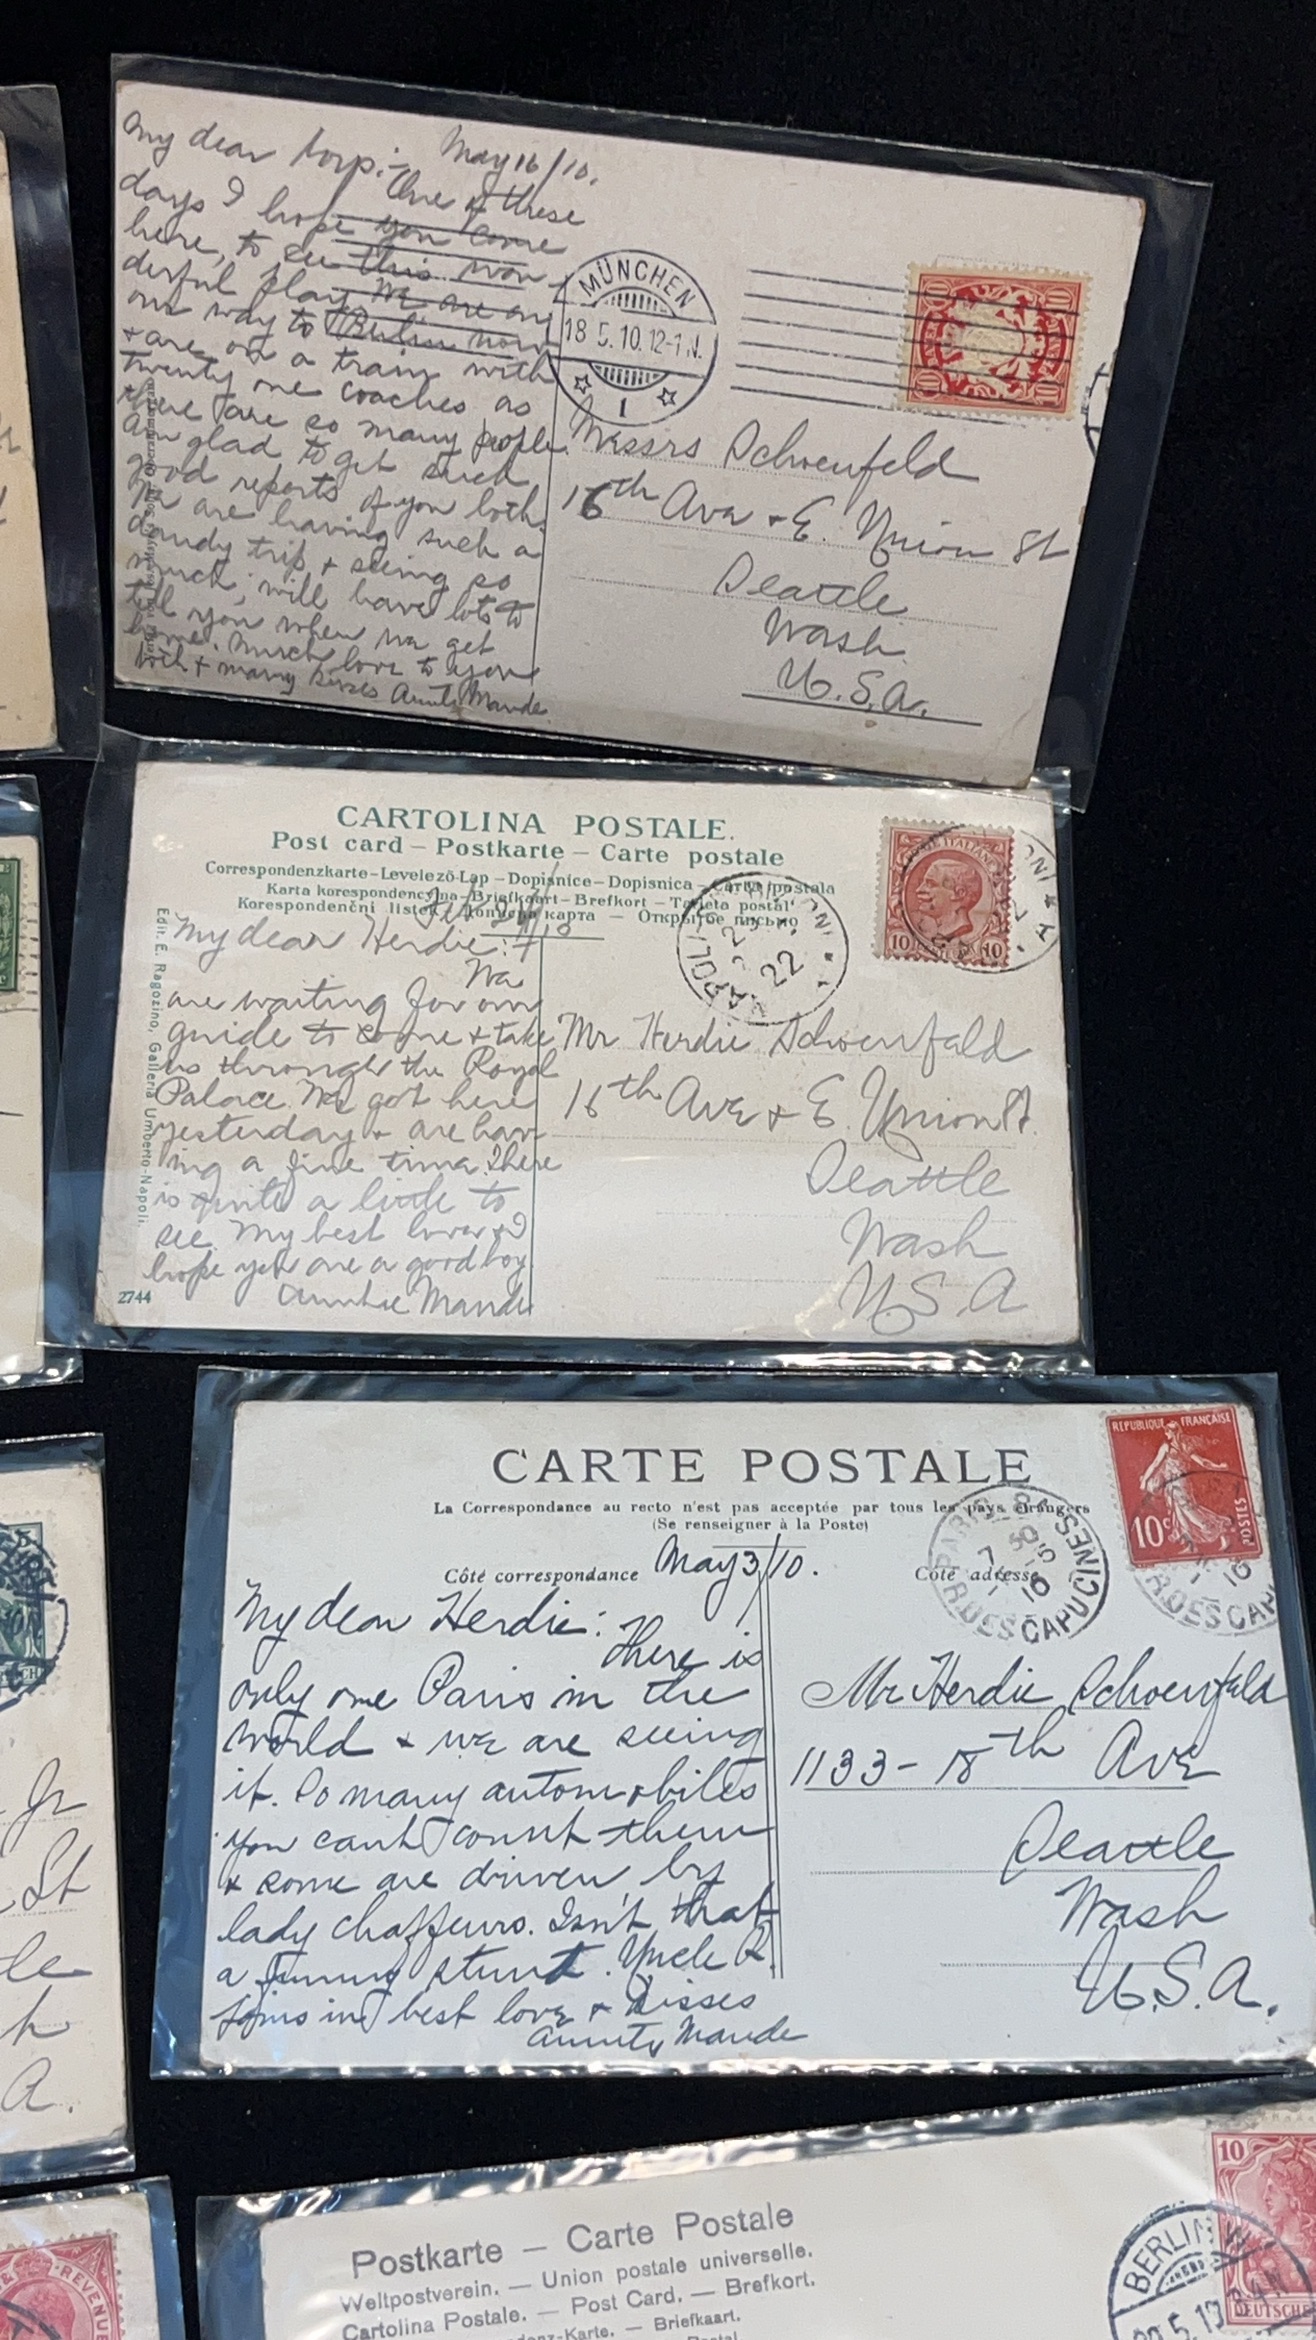 My dear
May 16/10.
One of these
days I hope you come
here, to see this won-
derful play. We are on
our way to Berlin now
+ are on a train with
twenty one coaches as
there are so many people.
Am glad to get such
good reports of you both.
We are having such a
dandy trip, + seeing so
much, will have lots to
tell you when we get
home. Much love to you
both + many kisses Aunty Maude.
MÜNCHEN
18 5.10.12-1 N.
1
10 10
10 10
Messrs Schoenfeld
16th Ave + E. Union St
Seattle
Wash.
U.S.A.
CARTOLINA POSTALE.
Post card – Postkarte – Carte postale
Correspondenzkarte – Levelező-Lap – Dopisnice – Dopisnica – Carta postala
Karta korespondencyjna – Briefkaart – Brefkort – Tarjeta postal
Korespondenční lístek – карта — Открытое письмо
Edit. E. Ragozino, Galleria Umberto - Napoli.
2744
My dear Herdie:
We
are waiting for our
guide to come + take
us through the Royal
Palace. We got here
yesterday + are hav-
ing a fine time. There
is quite a little to
see. My best love + I
hope you are a good boy.
Auntie Maude
NAPOLI
22
10 10
Mr Herdie Schoenfeld
16th Ave + E. Union St.
Seattle
Wash
U.S.A
CARTE POSTALE
La Correspondance au recto n'est pas acceptée par tous les pays étrangers
(Se renseigner à la Poste)
Côté correspondance
May 3/10.
Côté adresse
REPUBLIQUE FRANÇAISE
10c
POSTES
PARIS
CAPUCINES
My dear Herdie:
There is
only one Paris in the
world + we are seeing
it. So many automobiles
you can't count them
+ some are driven by
lady chaffeurs. Isn't that
a funny stunt. Uncle R.
joins in best love + kisses
Aunty Maude
Mr Herdie Schoenfeld
1133 - 18th Ave
Seattle
Wash
U.S.A.
Jr
St
le
h
A.
REVENUE
Postkarte — Carte Postale
Weltpostverein. — Union postale universelle.
Cartolina Postale. — Post Card. — Brefkort.
-Karte. — Briefkaart.
10
DEUTSCHES
BERLIN W.